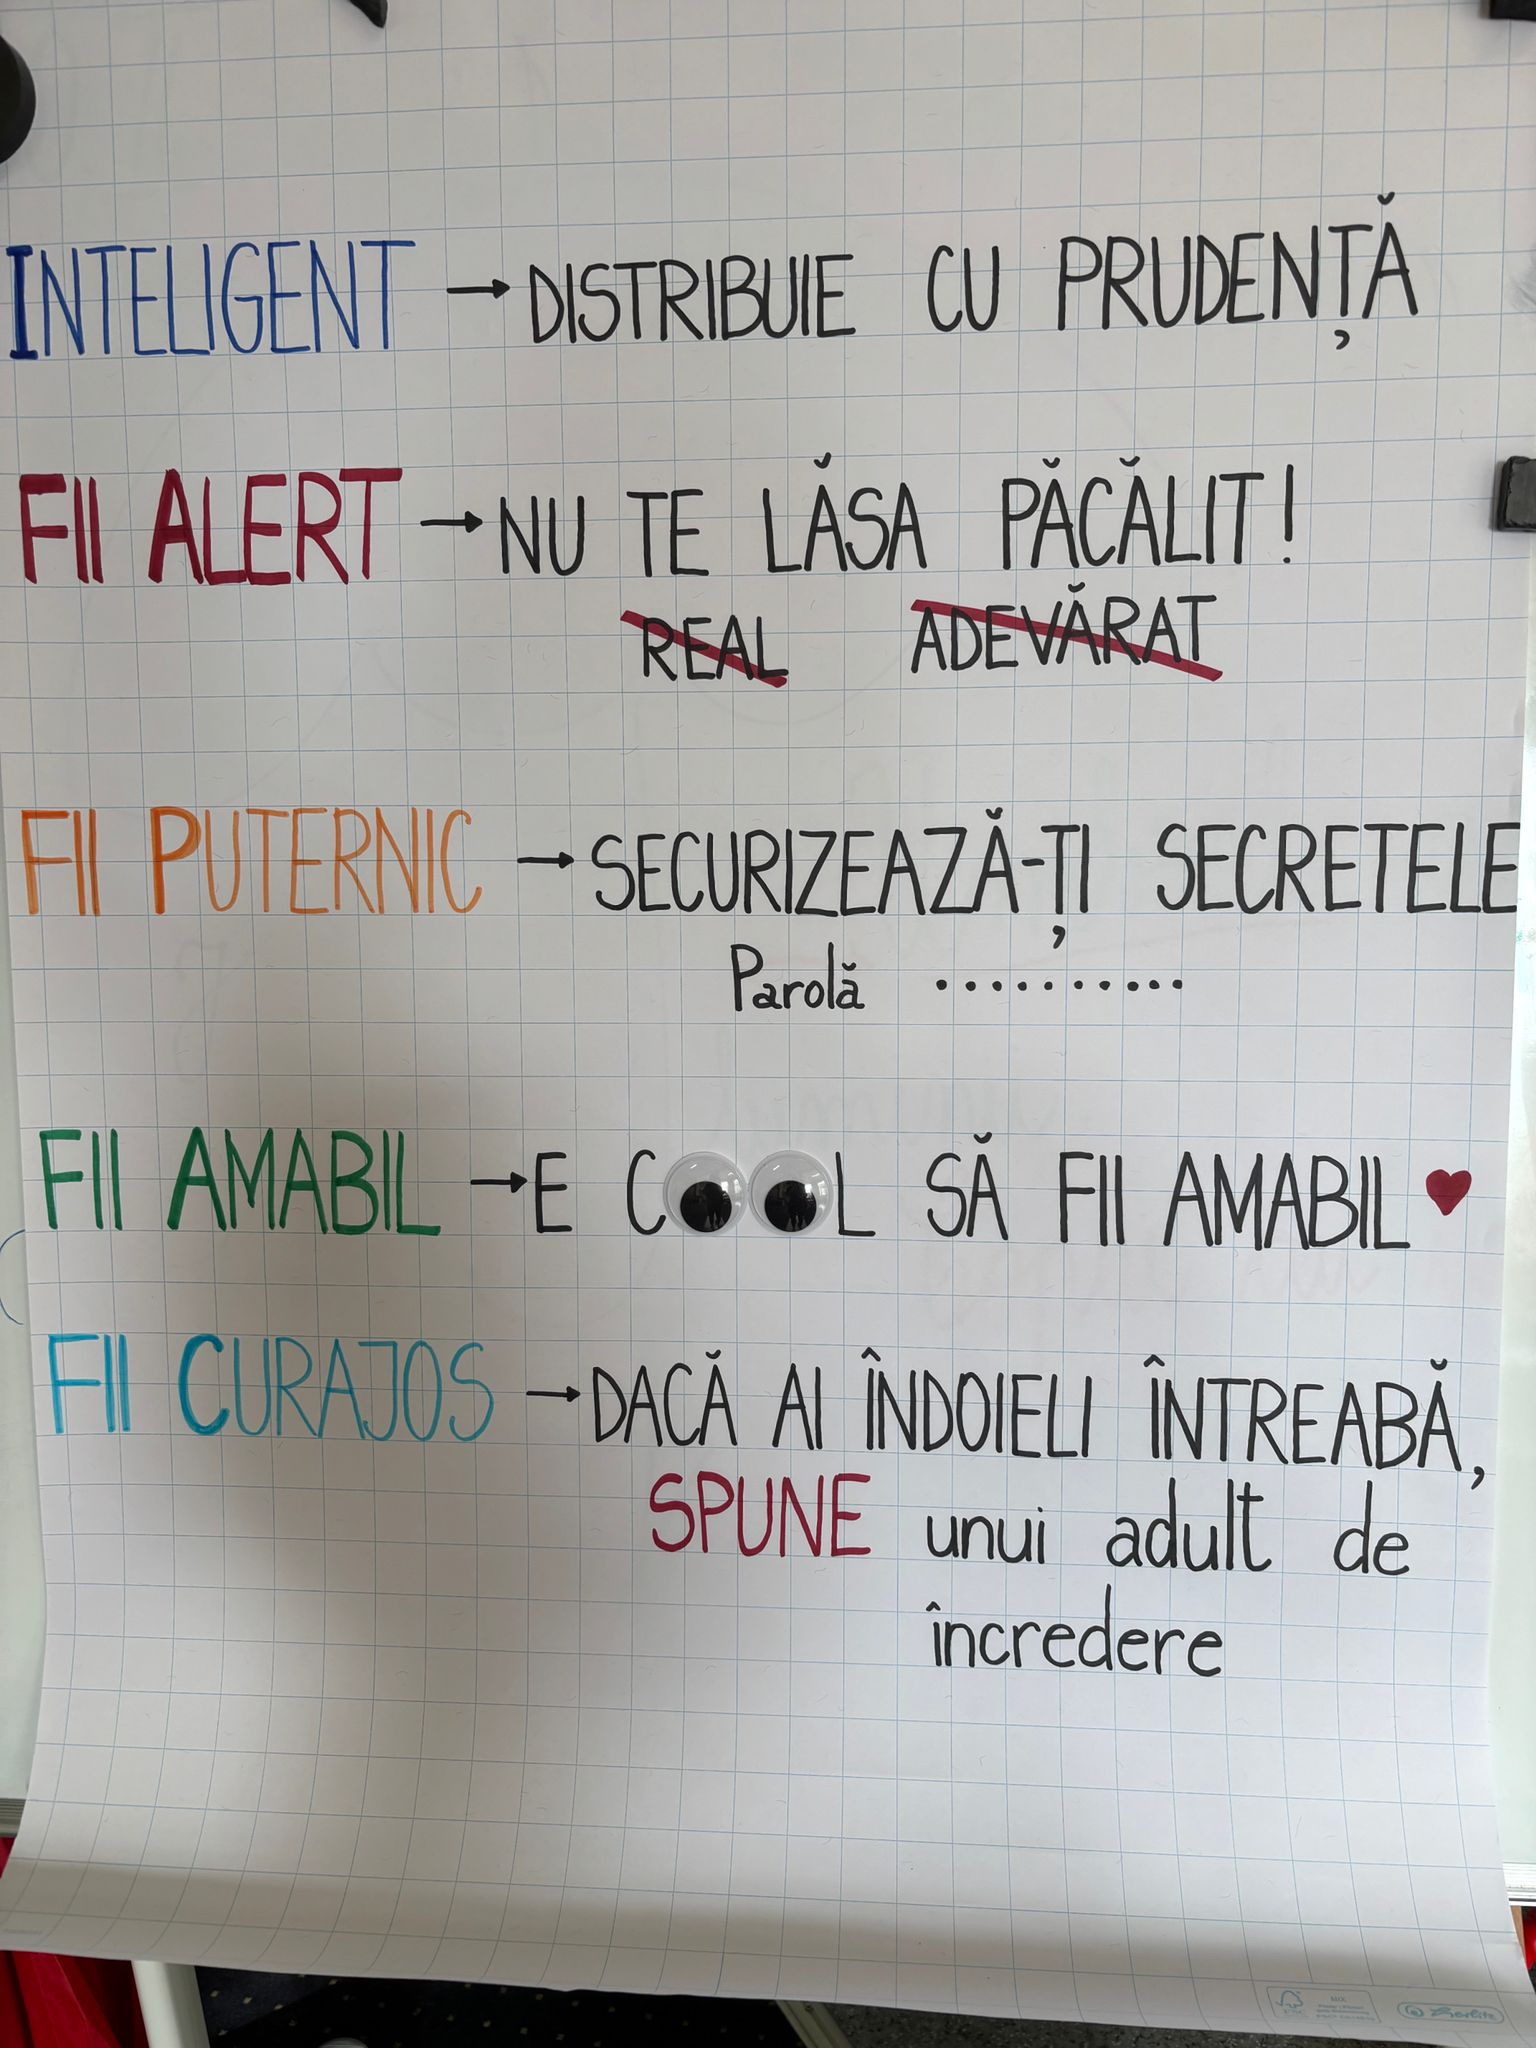 INTELIGENT → DISTRIBUIE CU PRUDENȚĂ
FII ALERT → NU TE LĂSA PĂCĂLIT!
REAL ADEVĂRAT
FII PUTERNIC → SECURIZEAZĂ-ȚI SECRETELE
Parolă ..........
FII AMABIL → E COOL SĂ FII AMABIL ♥
FII CURAJOS → DACĂ AI ÎNDOIELI ÎNTREABĂ,
SPUNE unui adult de
încredere
MIX